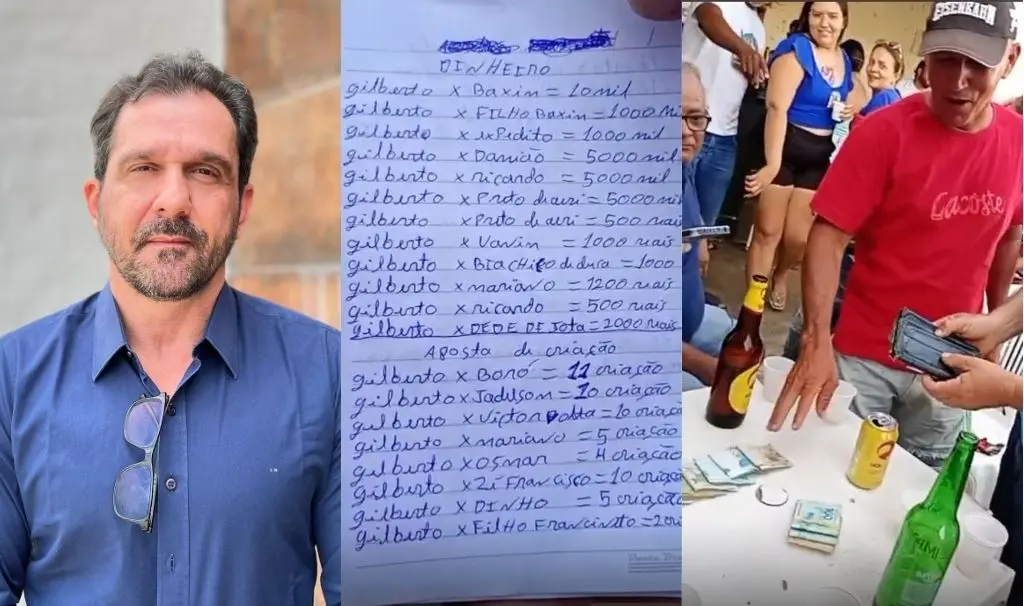 DINHEIRO
gilberto x Baxin = 10 mil
gilberto x FILHO Baxin = 1000 M
gilberto x expedito = 1000 mil
gilberto x Danião = 5000 mil
gilberto x ricardo = 5000 mil
gilberto x Preto de auri = 5000 mi
gilberto x Preto d auri = 500 reais
gilberto x Vavin = 1000 reais
gilberto x BIACHICO de duca = 1000
gilberto x mariano = 1200 reais
gilberto x ricardo = 500 reais
gilberto x DEDE DE Jota = 2000 reais
APosta de criação
gilberto x Boró = 11 criação
gilberto x Jadilson = 10 criação
gilberto x Victor = 10 criaçã
gilberto x mariano = 5 criação
gilberto x OSmar = 4 criação
gilberto x Zé Francisco = 10 criação
gilberto x DINHO = 5 criação
gilberto x FilHO Francinito = 20 cri
EISENBAHN
Lacoste